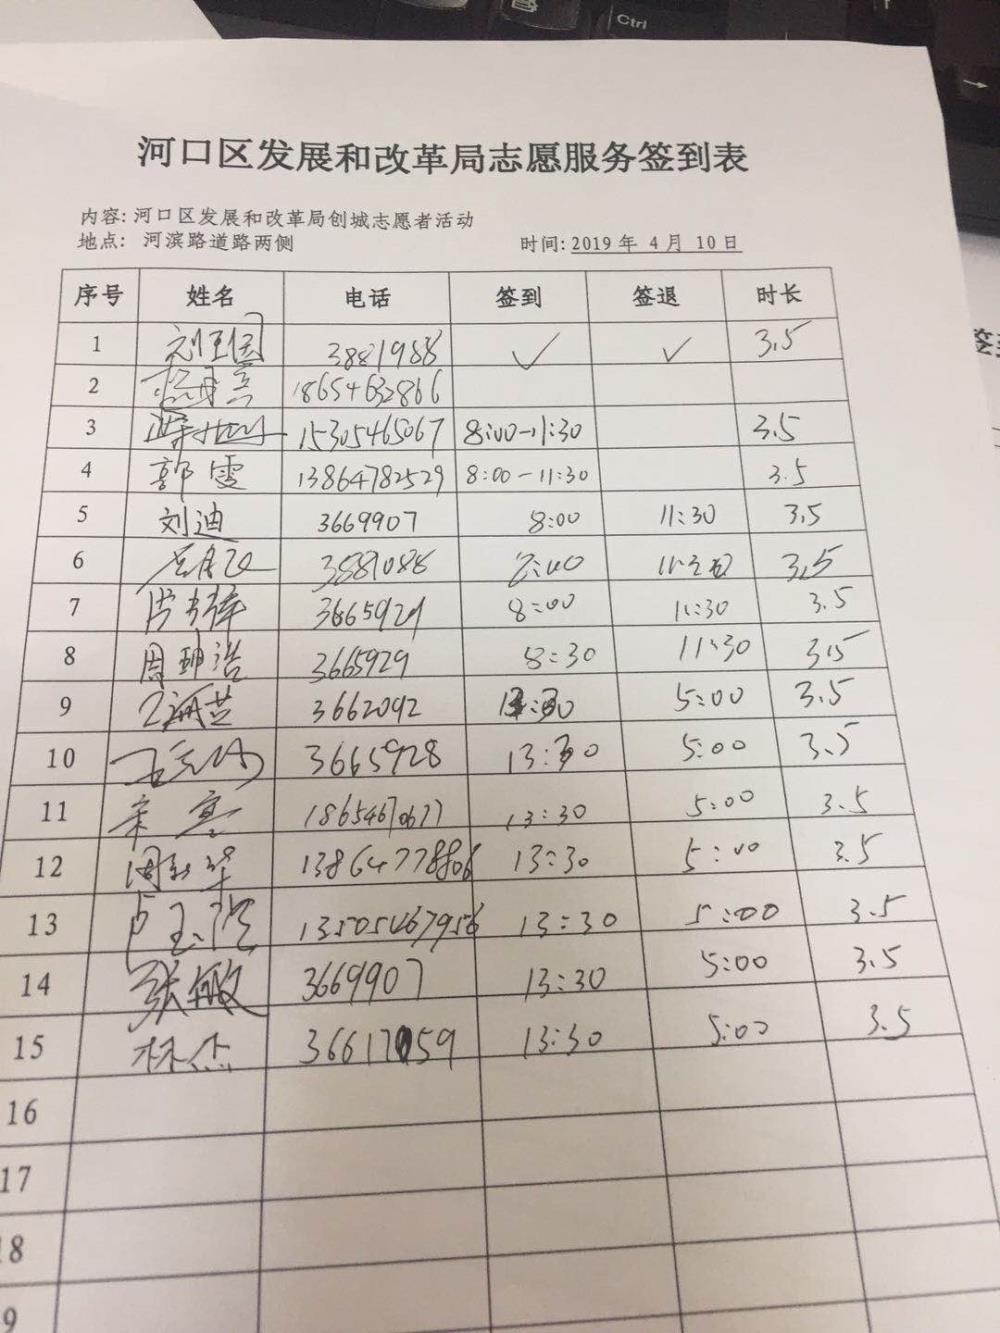 Ctrl
河口区发展和改革局志愿服务签到表
内容: 河口区发展和改革局创城志愿者活动
地点: 河滨路道路两侧 时间: 2019 年 4 月 10 日
序号 姓名 电话 签到 签退 时长
1 3881988 ✓ ✓ 3.5
2 18654632866
3 15305465067 8:00-11:30 3.5
4 郭雯 13864782529 8:00-11:30 3.5
5 刘迪 3669907 8:00 11:30 3.5
6 3881088 3.5
7 3665929 8:00 11:30 3.5
8 周珅浩 3665929 8:30 11:30 3.5
9 3662092 5:00 3.5
10 3665928 13:30 5:00 3.5
11 13:30 5:00 3.5
12 13864778806 13:30 5:00 3.5
13 13505467956 13:30 5:00 3.5
14 张敏 3669907 13:30 5:00 3.5
15 林杰 13:30 5:00 3.5
16
17
18
9